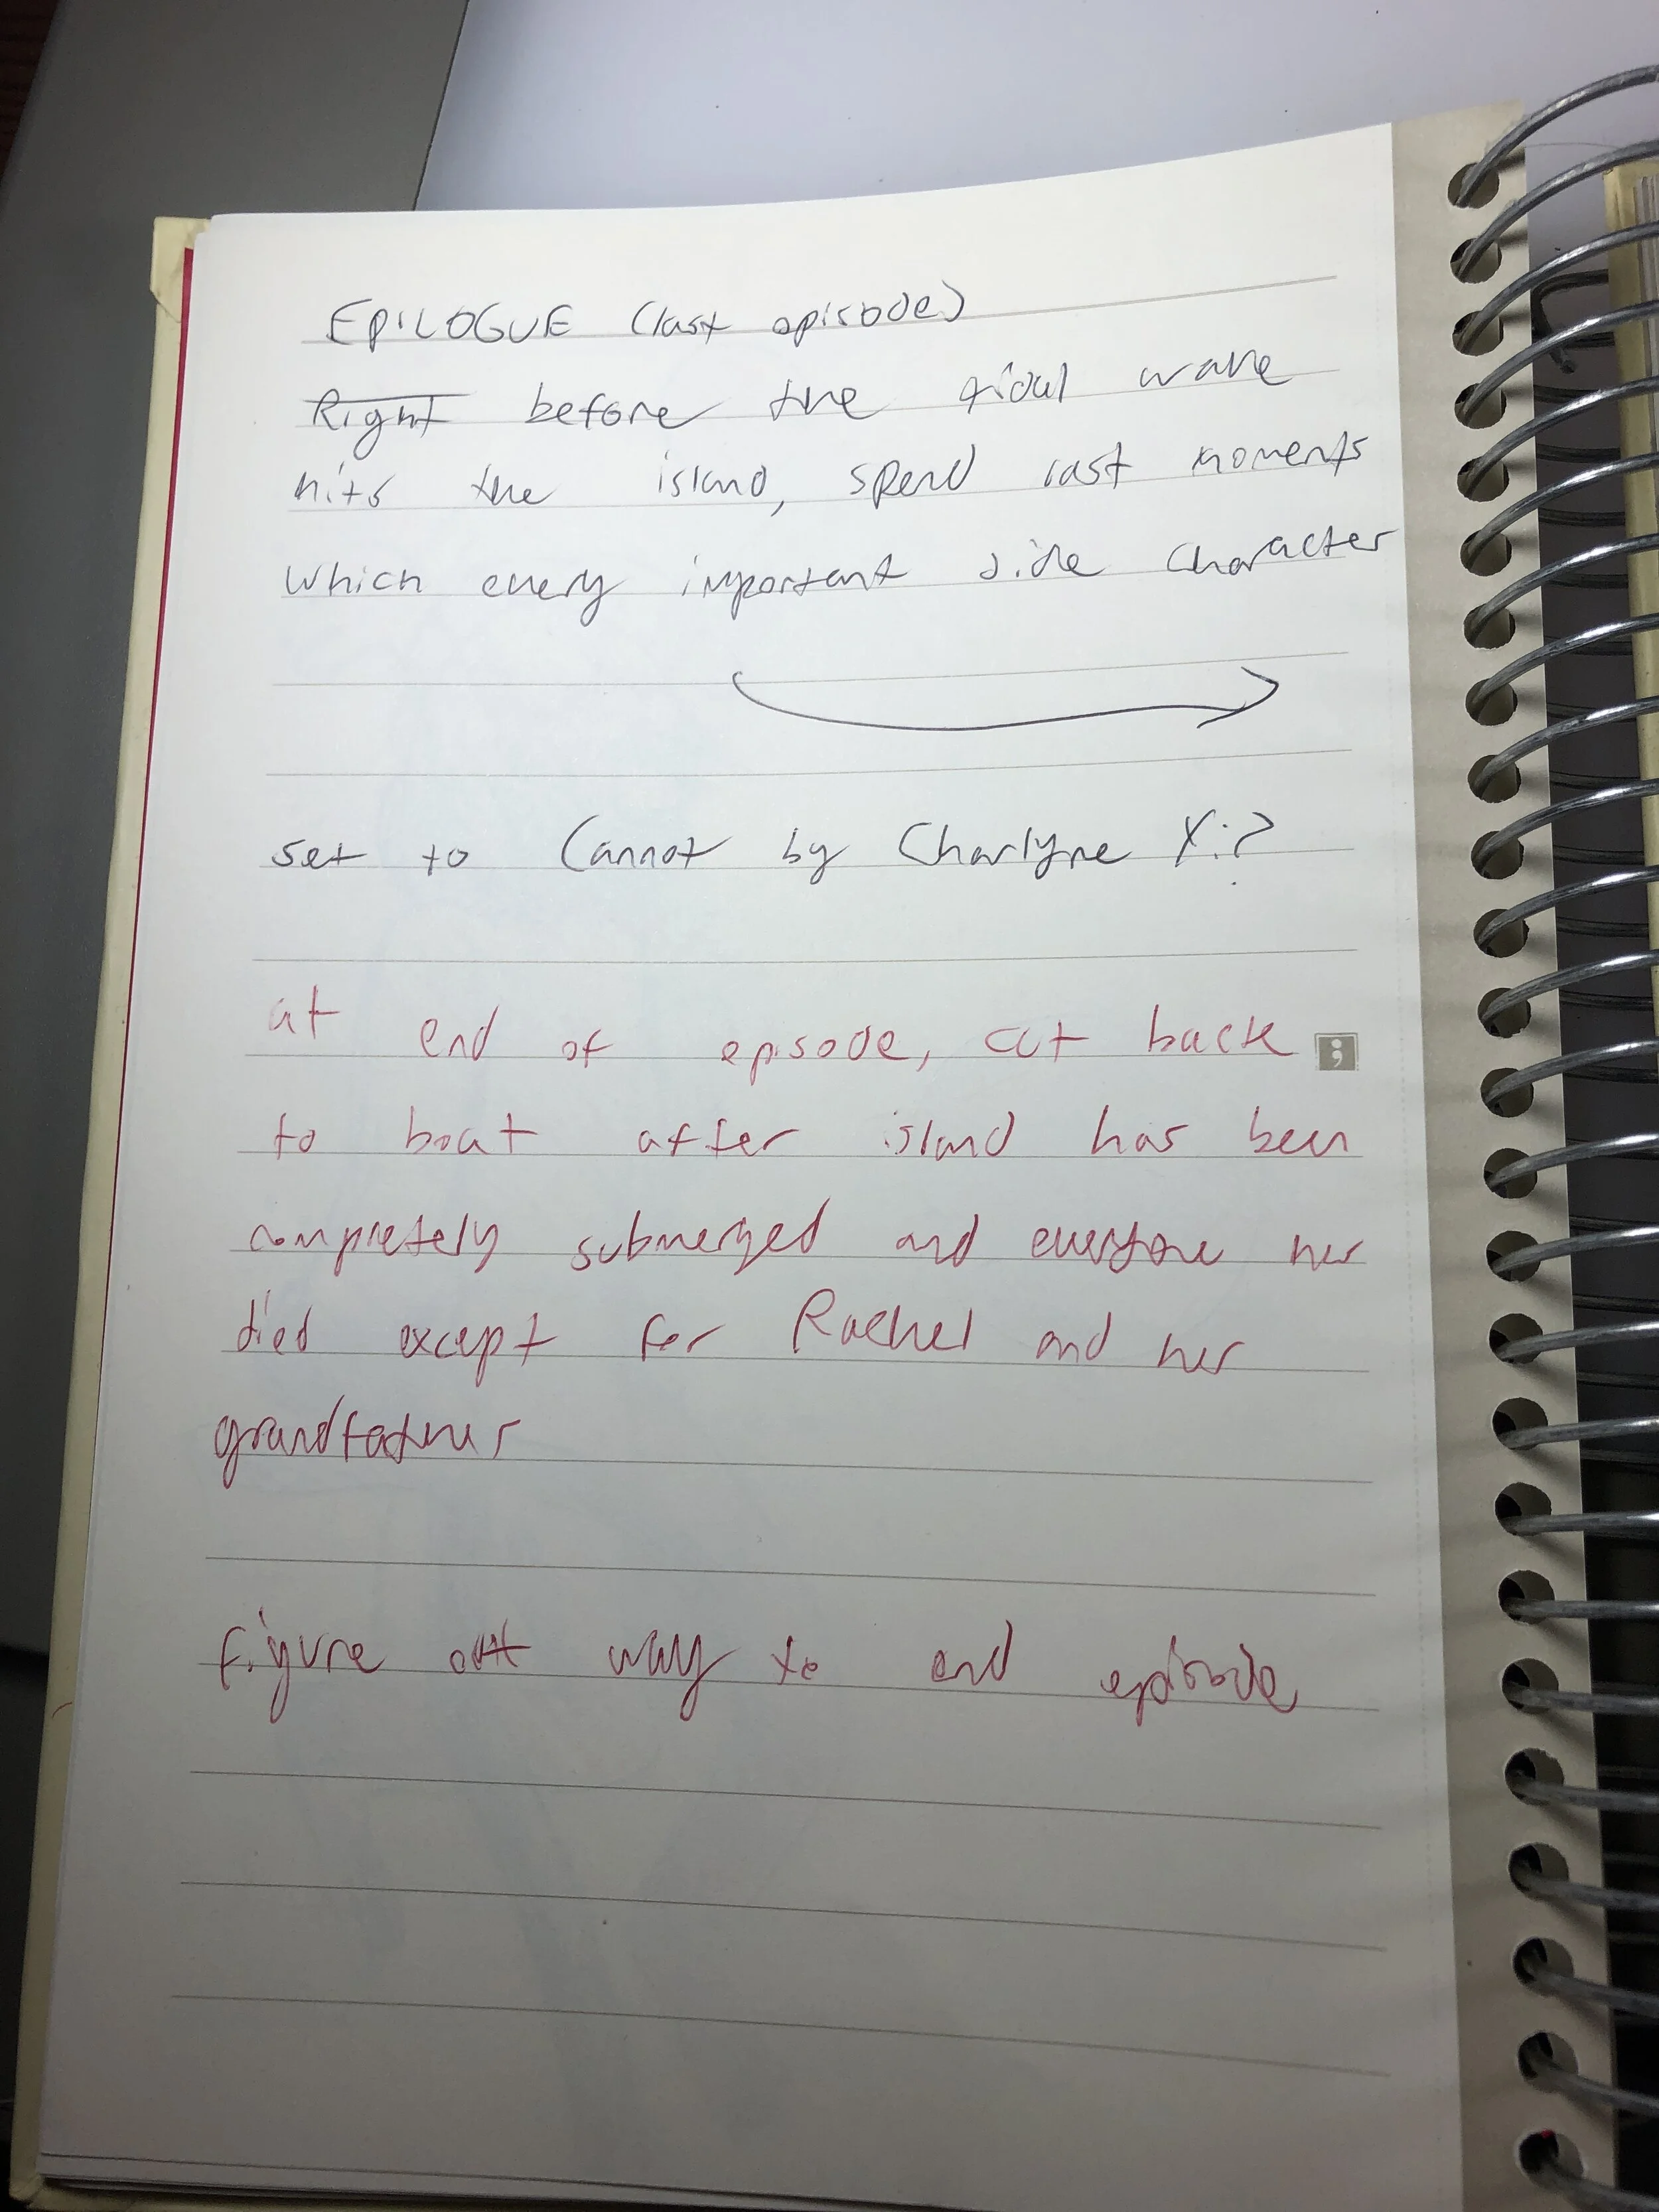 EPILOGUE (last episode)
Right before the tidal wave
hits the island, spend last moments
which every important side character
set to Cannot by Charlyne Yi?
at end of epsode, cut back
;
to boat after island has been
completely submerged and everyone has
died except for Rachel and her
grandfather
figure out way to end episode